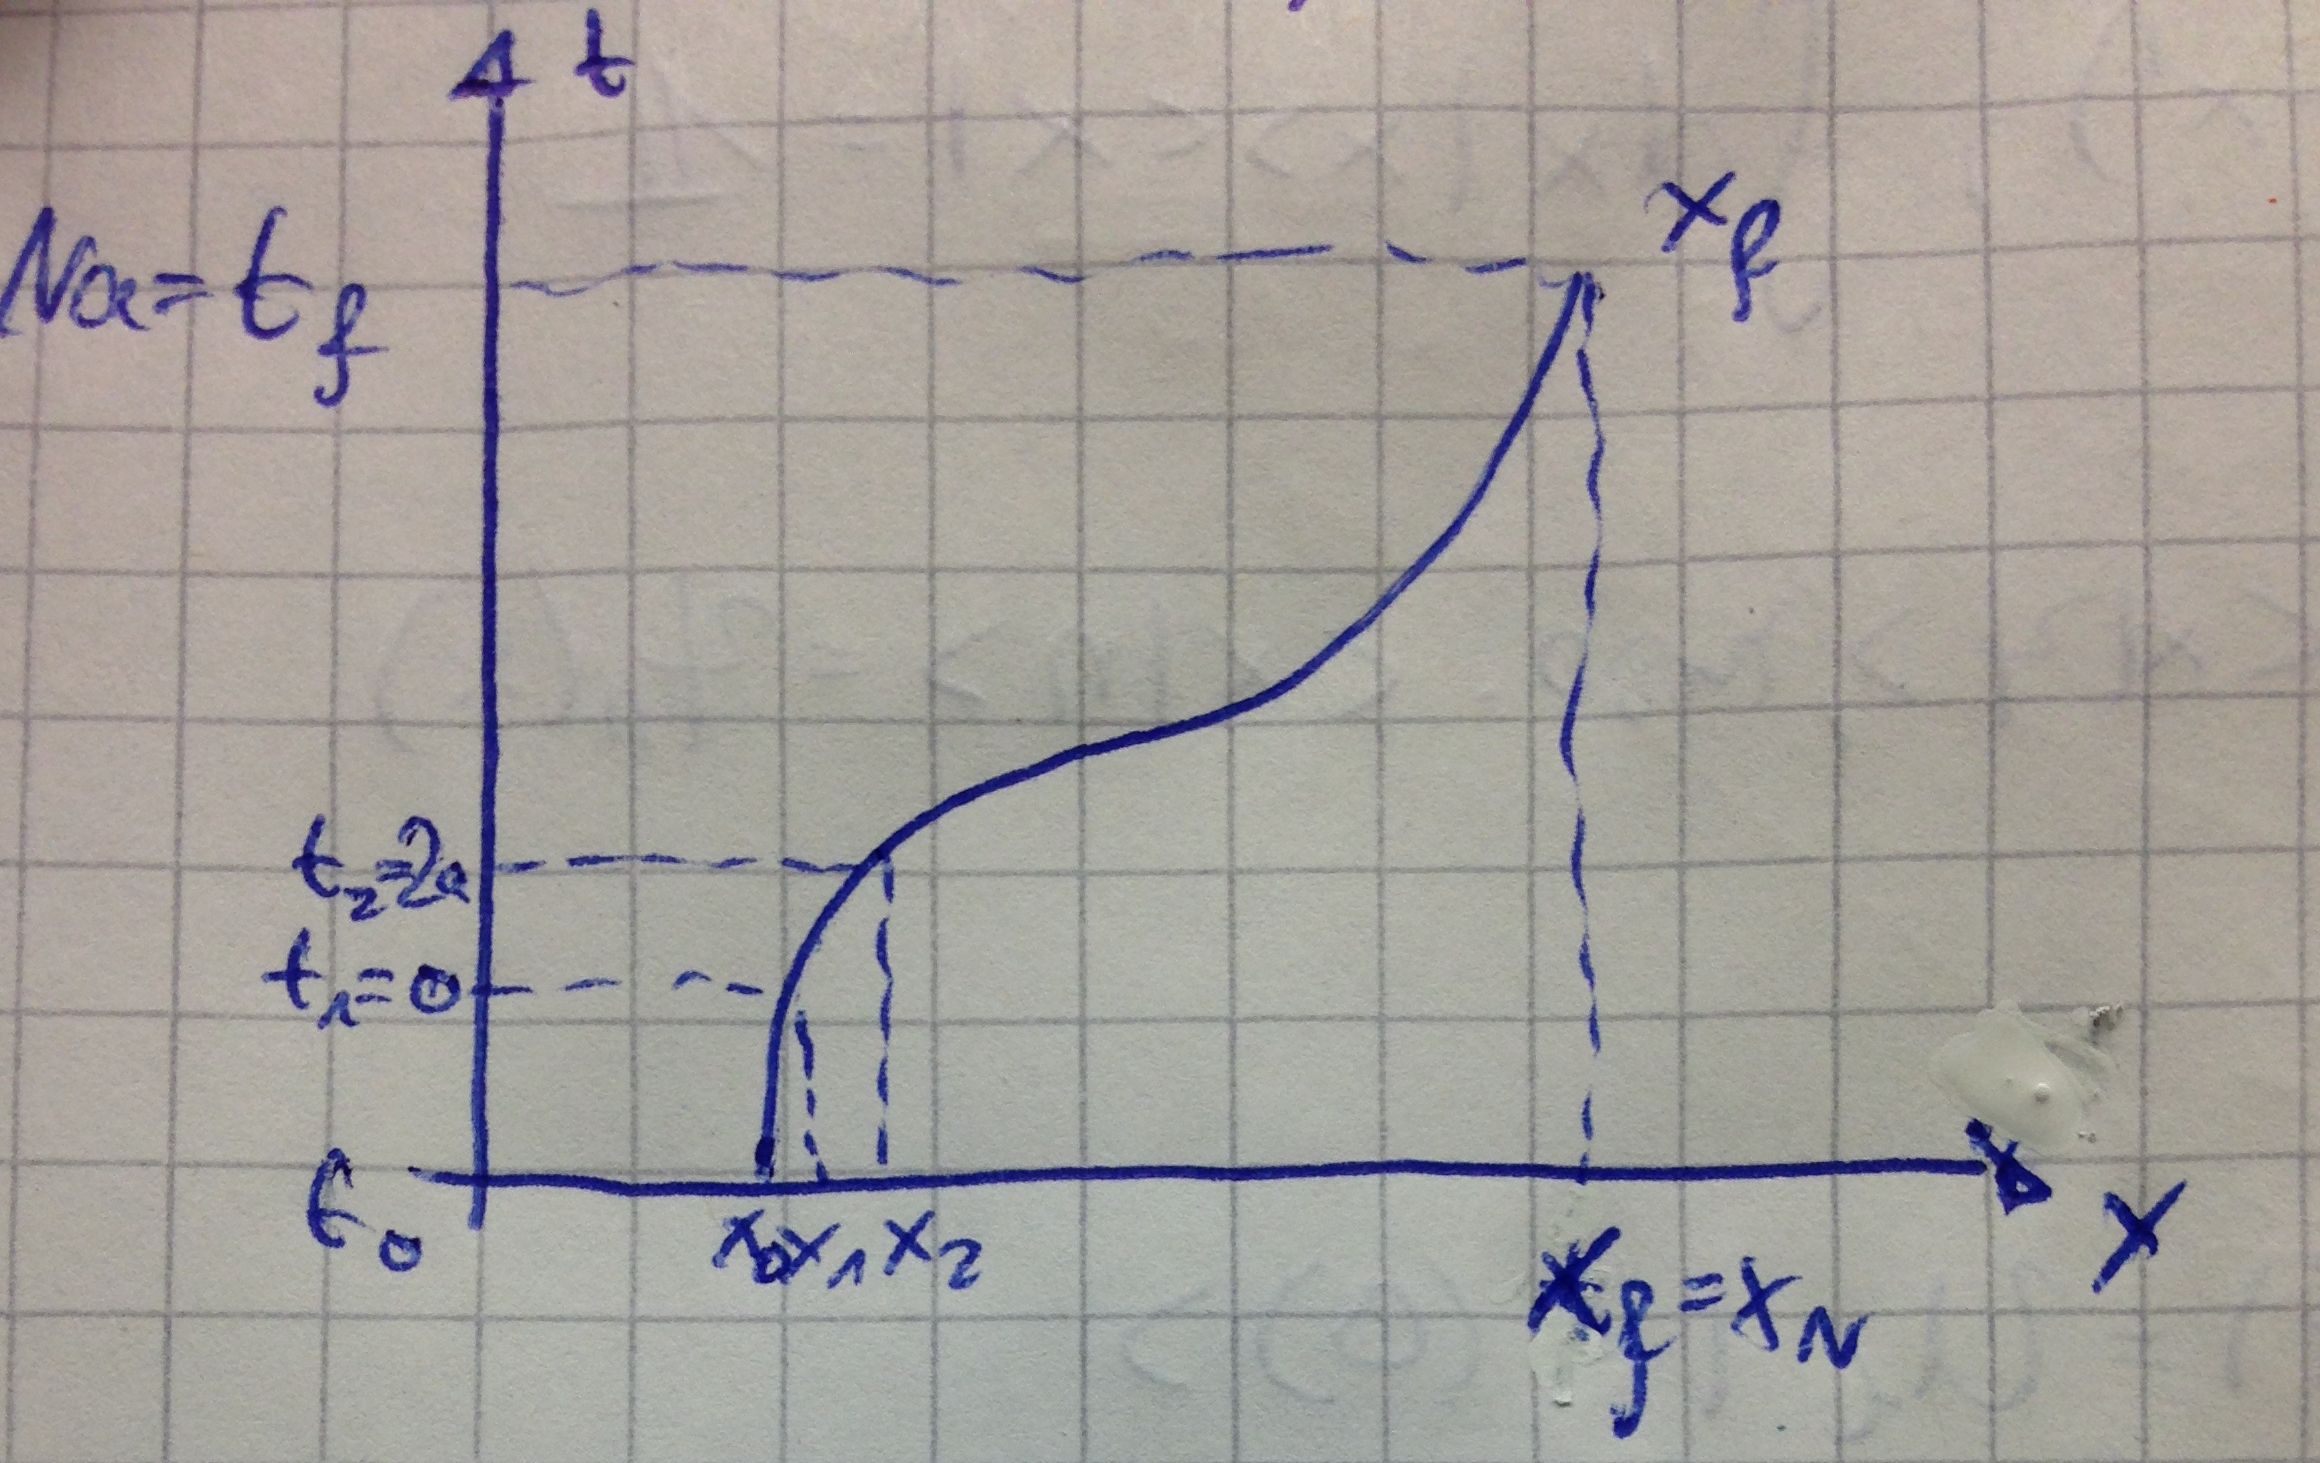 t
x_f
Na=t_f
t_2=2a
t_1=0
t_0
x_0 x_1 x_2
x_f=x_N
x